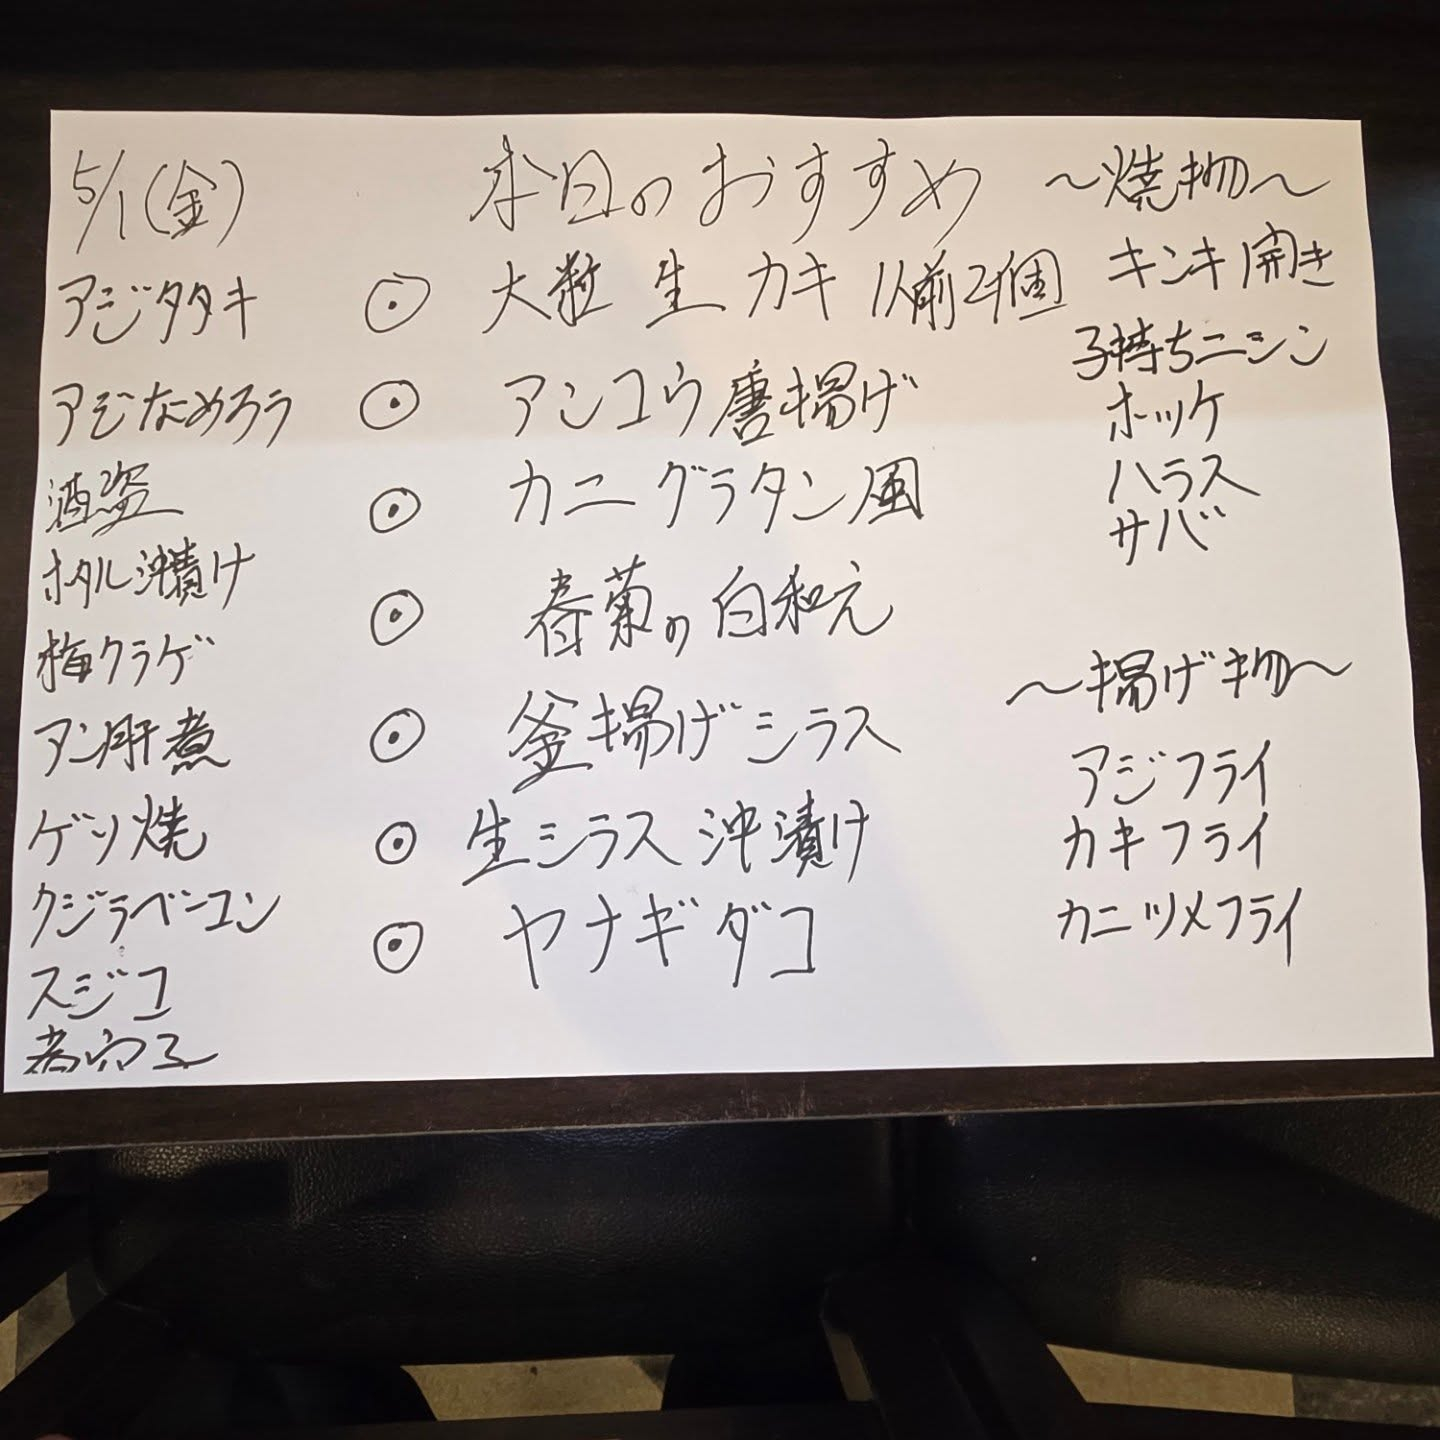 5/1(金)
アジタタキ
アジなめろう
酒盗
ホタル沖漬け
梅クラゲ
アン肝煮
ゲソ焼
クジラベーコン
スジコ
煮穴子
本日のおすすめ
◉ 大粒 生 カキ 1人前2個
◉ アンコウ唐揚げ
◉ カニ グラタン風
◉ 春菊の白和え
◉ 釜揚げシラス
◉ 生シラス 沖漬け
◉ ヤナギダコ
〜焼物〜
キンキ開き
子持ちニシン
ホッケ
ハラス
サバ
〜揚げ物〜
アジフライ
カキフライ
カニツメフライ